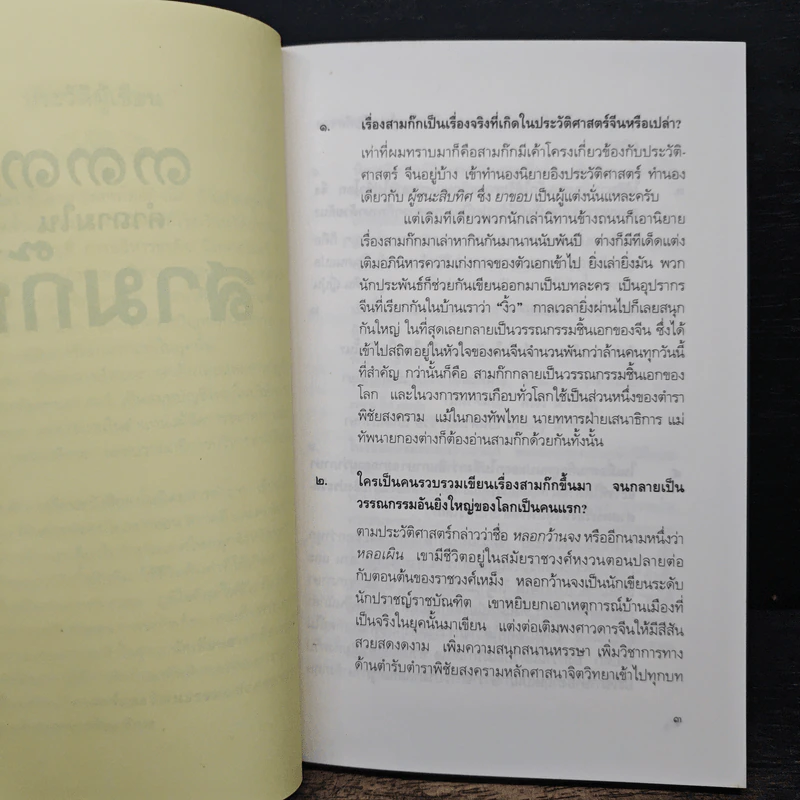 ๑. เรื่องสามก๊กเป็นเรื่องจริงที่เกิดในประวัติศาสตร์จีนหรือเปล่า?
เท่าที่ผมทราบมาก็คือสามก๊กมีเค้าโครงเกี่ยวข้องกับประวัติ-
ศาสตร์ จีนอยู่บ้าง เข้าทำนองนิยายอิงประวัติศาสตร์ ทำนอง
เดียวกับ ผู้ชนะสิบทิศ ซึ่ง ยาขอบ เป็นผู้แต่งนั่นแหละครับ
แต่เดิมทีเดียวพวกนักเล่านิทานข้างถนนก็เอานิยาย
เรื่องสามก๊กมาเล่าหากินกันมานานนับพันปี ต่างก็มีทีเด็ดแต่ง
เติมอภินิหารความเก่งกาจของตัวเอกเข้าไป ยิ่งเล่ายิ่งมัน พวก
นักประพันธ์ก็ช่วยกันเขียนออกมาเป็นบทละคร เป็นอุปรากร
จีนที่เรียกกันในบ้านเราว่า “งิ้ว” กาลเวลายิ่งผ่านไปก็เลยสนุก
กันใหญ่ ในที่สุดเลยกลายเป็นวรรณกรรมชิ้นเอกของจีน ซึ่งได้
เข้าไปสถิตอยู่ในหัวใจของคนจีนจำนวนพันกว่าล้านคนทุกวันนี้
ที่สำคัญ กว่านั้นก็คือ สามก๊กกลายเป็นวรรณกรรมชิ้นเอกของ
โลก และในวงการทหารเกือบทั่วโลกใช้เป็นส่วนหนึ่งของตำรา
พิชัยสงคราม แม้ในกองทัพไทย นายทหารฝ่ายเสนาธิการ แม่
ทัพนายกองต่างก็ต้องอ่านสามก๊กด้วยกันทั้งนั้น
๒. ใครเป็นคนรวบรวมเขียนเรื่องสามก๊กขึ้นมา จนกลายเป็น
วรรณกรรมอันยิ่งใหญ่ของโลกเป็นคนแรก?
ตามประวัติศาสตร์กล่าวว่าชื่อ หลอกว้านจง หรืออีกนามหนึ่งว่า
หลอเผิน เขามีชีวิตอยู่ในสมัยราชวงศ์หงวนตอนปลายต่อ
กับตอนต้นของราชวงศ์เหม็ง หลอกว้านจงเป็นนักเขียนระดับ
นักปราชญ์ราชบัณฑิต เขาหยิบยกเอาเหตุการณ์บ้านเมืองที่
เป็นจริงในยุคนั้นมาเขียน แต่งต่อเติมพงศาวดารจีนให้มีสีสัน
สวยสดงดงาม เพิ่มความสนุกสนานหรรษา เพิ่มวิชาการทาง
ด้านตำรับตำราพิชัยสงครามหลักศาสนาจิตวิทยาเข้าไปทุกบท
๓